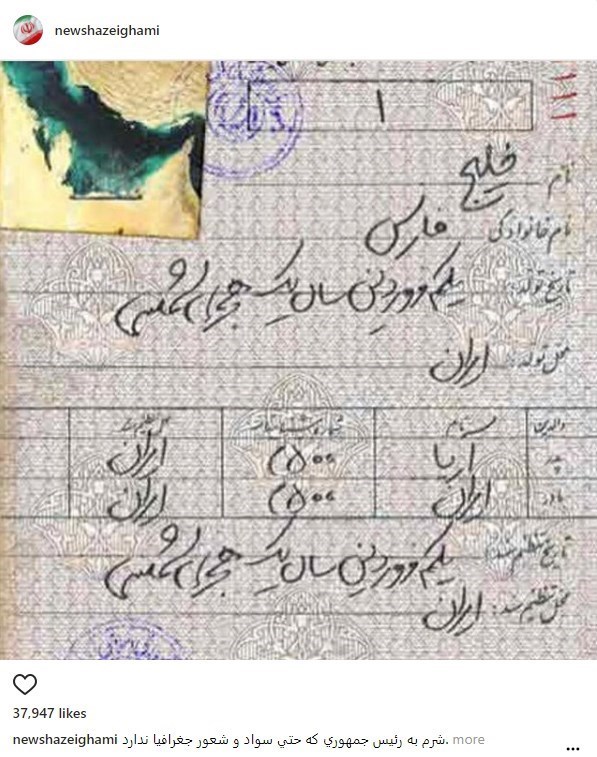 newshazeighami
۱
نام خلیج
نام خانوادگی فارس
تاریخ تولد: یکم فروردین سال یک هجری شمسی
محل تولد: ایران
والدین نام شماره شناسنامه محل تنظیم سند
پدر آریا ۲۵۰۰ ایران
مادر ایران ۲۵۰۰ ایران
تاریخ تنظیم سند: یکم فروردین سال یک هجری شمسی
محل تنظیم سند: ایران
37,947 likes
newshazeighami شرم به رئيس جمهوري كه حتي سواد و شعور جغرافيا ندارد. more